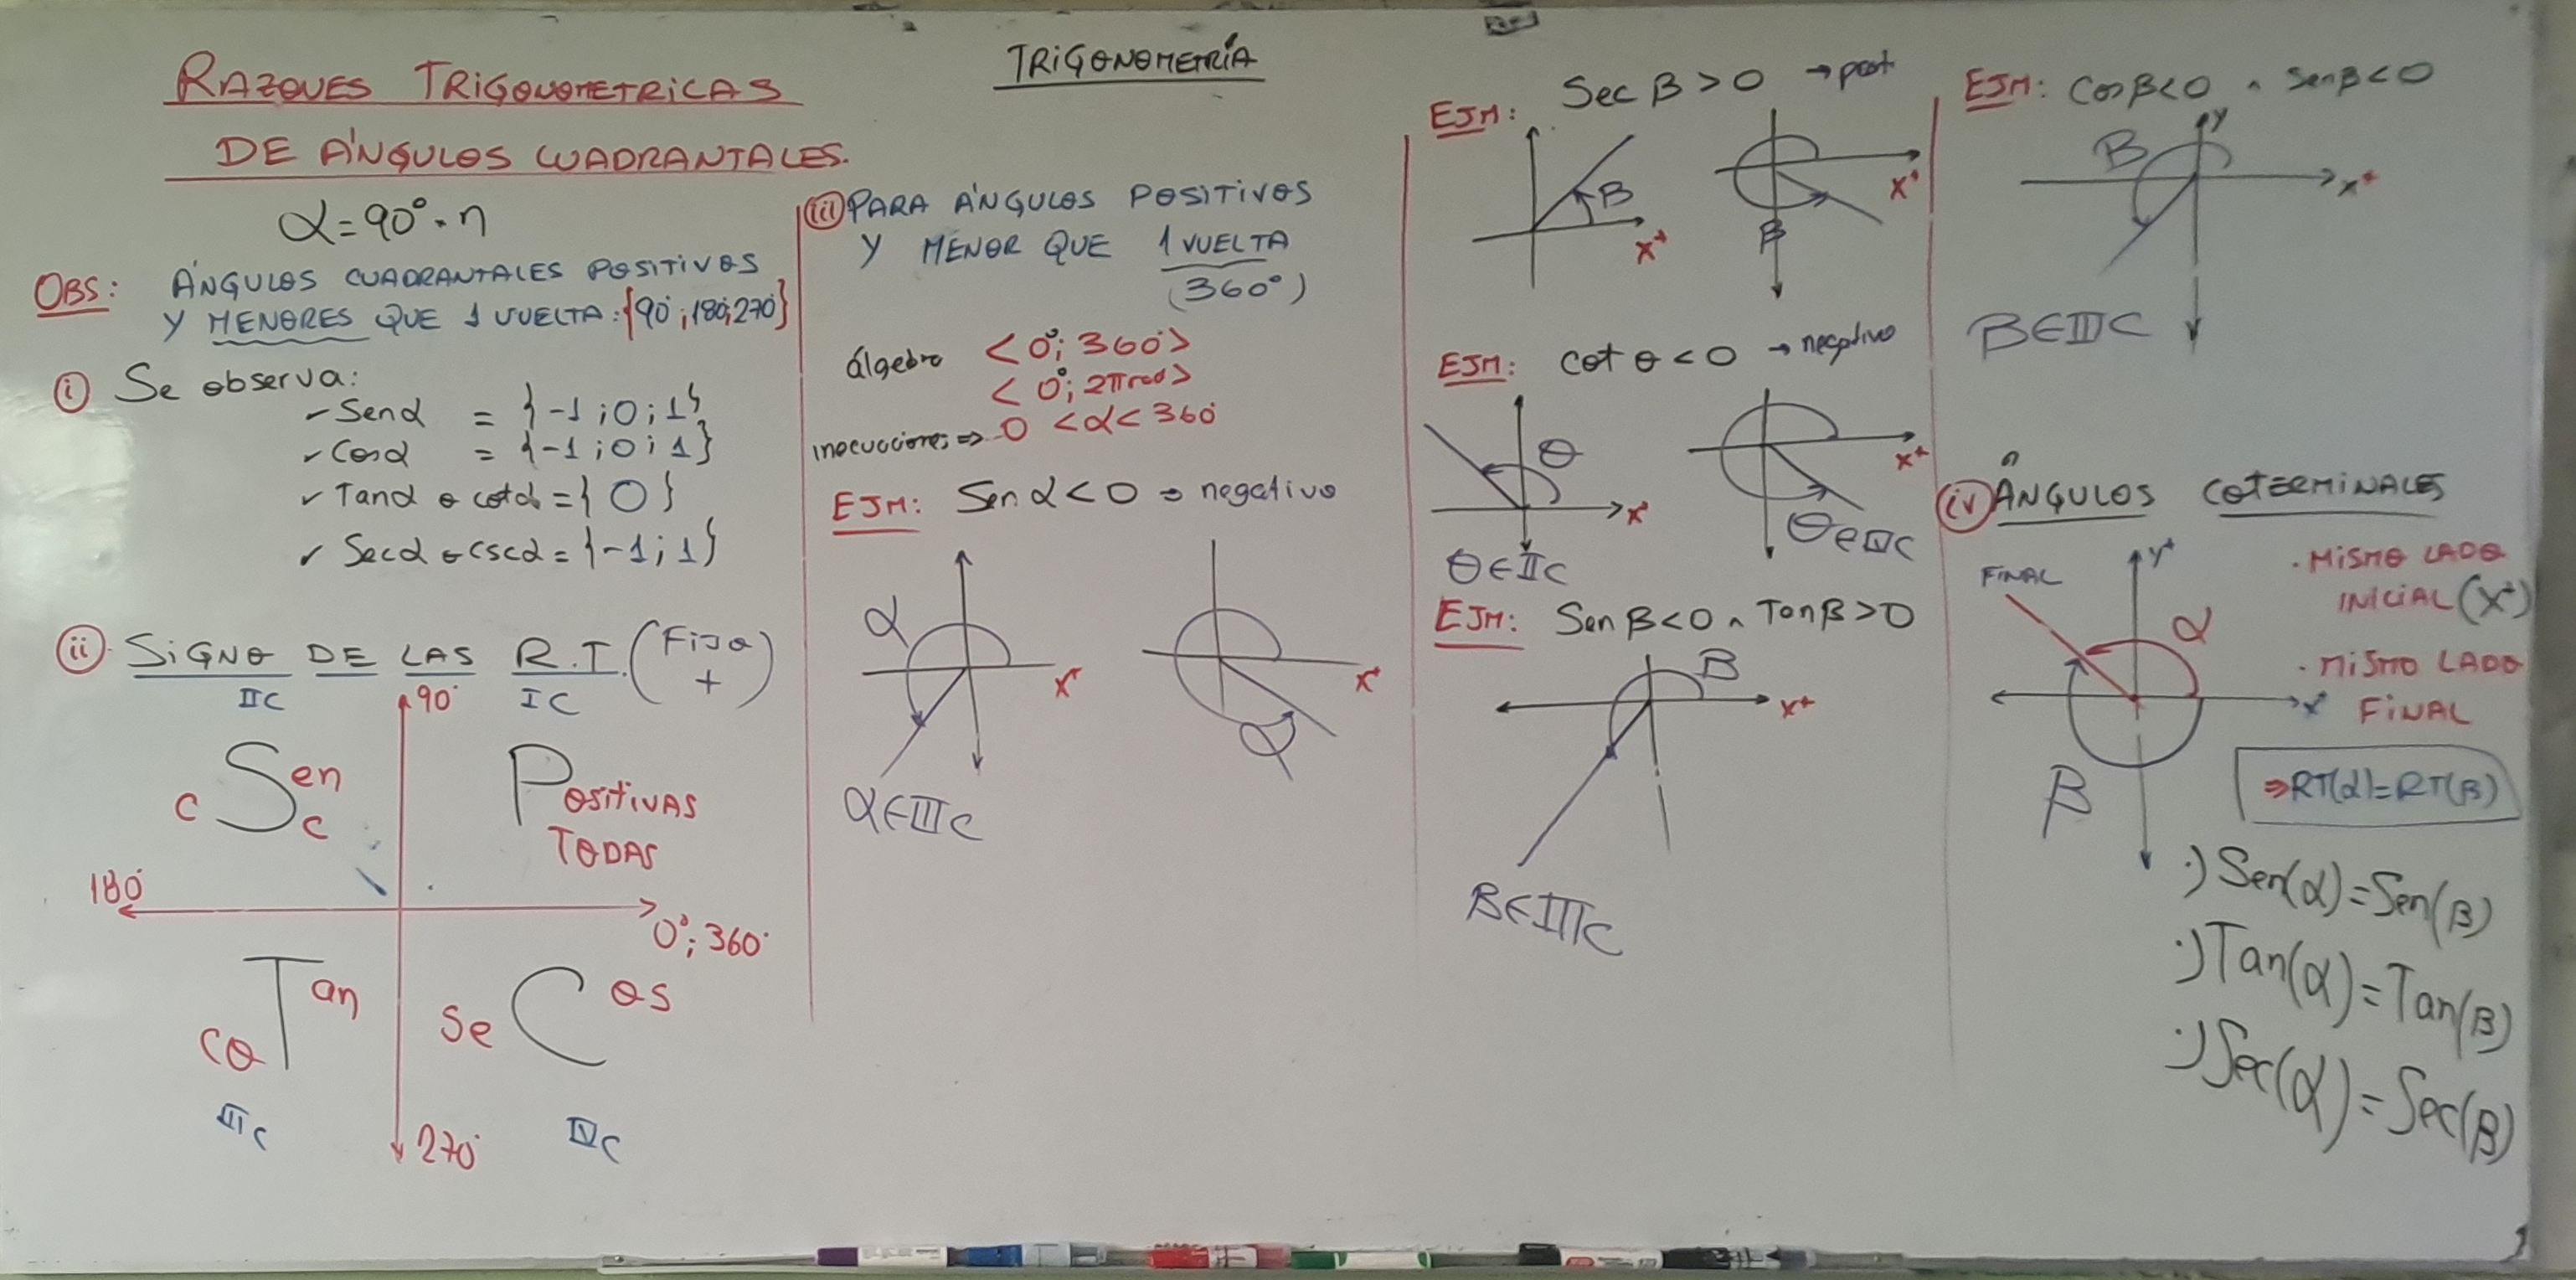 TRIGONOMETRÍA
RAZONES TRIGONOMETRICAS
DE ÁNGULOS CUADRANTALES.
α=90°·n
OBS: ÁNGULOS CUADRANTALES POSITIVOS
Y MENORES QUE 1 VUELTA:{90°;180°;270°}
(i) Se observa:
✓ Senα = {-1;0;1}
✓ Cosα = {-1;0;1}
✓ Tanα o cotα={0}
✓ Secα o cscα={-1;1}
(ii) SIGNO DE LAS R.T. (Fija +)
IIC 90° IC
cSen c
POSITIVAS
TODAS
180° 0°;360°
coTan
seCos
IIIC 270° IVC
(iii) PARA ÁNGULOS POSITIVOS
Y MENOR QUE 1 VUELTA
(360°)
álgebra <0°;360°>
<0°;2πrad>
0 <α<360°
EJM: Sen α<0 ⇒ negativo
α X+ X+
α
α∈IIIC
EJM: Sec β>0 →
β X+ X+
β
EJM: cot θ<0 → negativo
θ X+ X+
θ∈IIC θ∈IVC
EJM: Sen β<0 ∧ Tan β>0
β X+
β∈IIIC
EJM: Cosβ<0 ∧ senβ<0
y
β X+
β∈IIIC
(iv) ÁNGULOS COTERMINALES
FINAL y+ α
X+
β
· MISMO LADO
INICIAL (X+)
· MISMO LADO
FINAL
⇒RT(α)=RT(β)
·) Sen(α)=Sen(β)
·) Tan(α)=Tan(β)
·) Sec(α)=Sec(β)